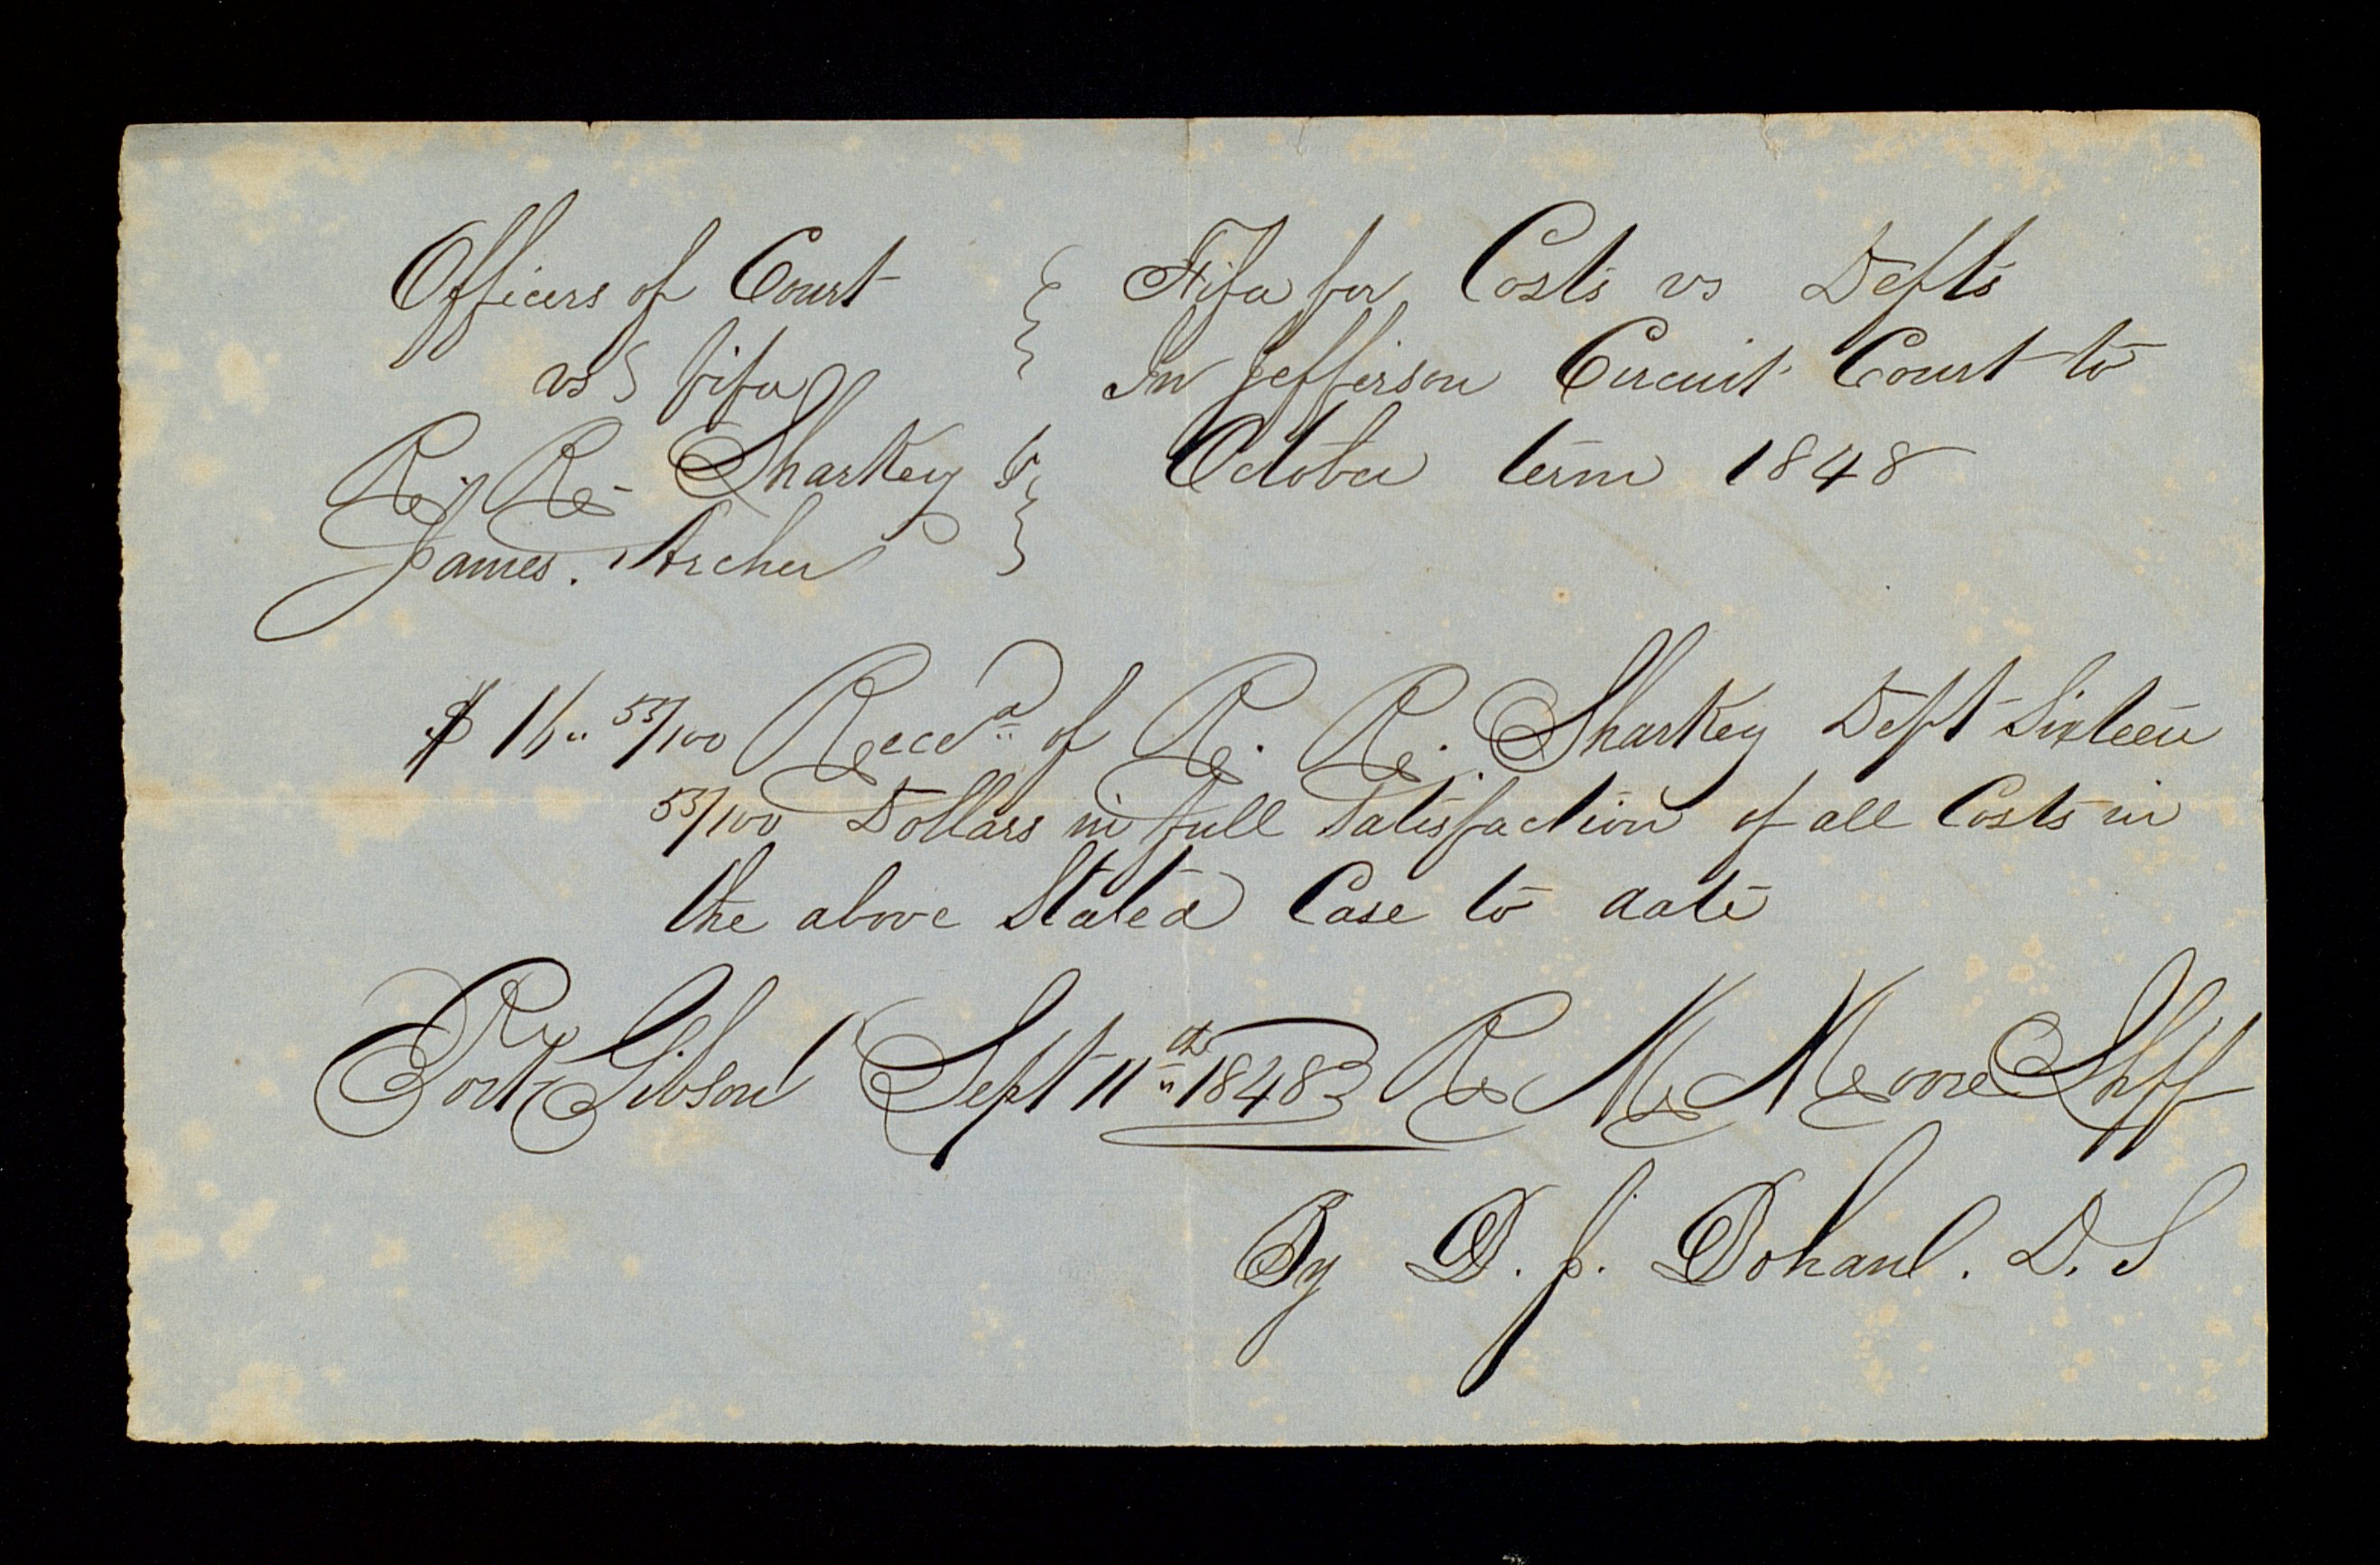 Officers of Court } Fifa for Costs vs Defts
vs } fifa In Jefferson Circuit Court to
R. R. Sharkey & } October term 1848
James. Archer
$16.. 53/100 Reced of R. R. Sharkey Deft Sixteen
53/100 Dollars in full Satisfaction of all Costs in
the above Stated Case to date
Port Gibson Sept 11th 1848 } R M Moore Shff
By D. J. Bohanl. D. S